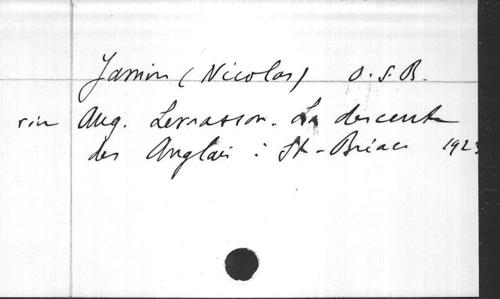 Jamin (Nicolas) O.S.B.
Aug. Levasson. La descente
des Anglais : St-Briac 192